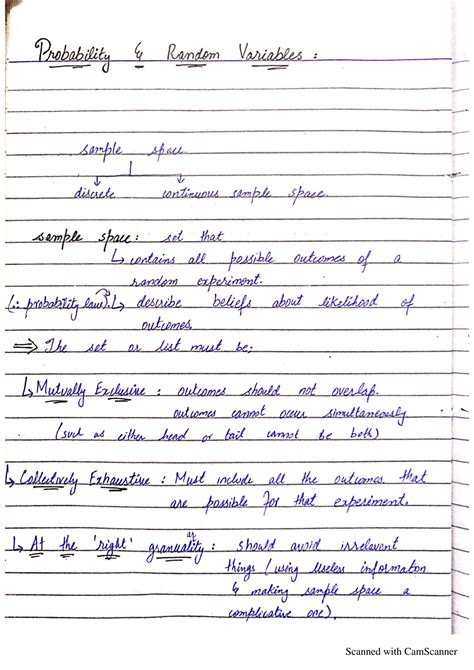 Probability & Random Variables :
sample space
discrete continuous sample space.
sample space : set that
↳ contains all possible outcomes of a
random experiment.
(∴ probability law). ↳ describe beliefs about likelihood of
outcomes.
⇒ The set or list must be:
↳ Mutually Exclusive : outcomes should not overlap.
outcomes cannot occur simultaneously
(such as either head or tail cannot be both)
↳ Collectively Exhaustive : Must include all the outcomes that
are possible for that experiment.
↳ At the 'right' granuality : should avoid irrelevent
ar
things (using useless informaton
& making sample space a
complicative one).
Scanned with CamScanner